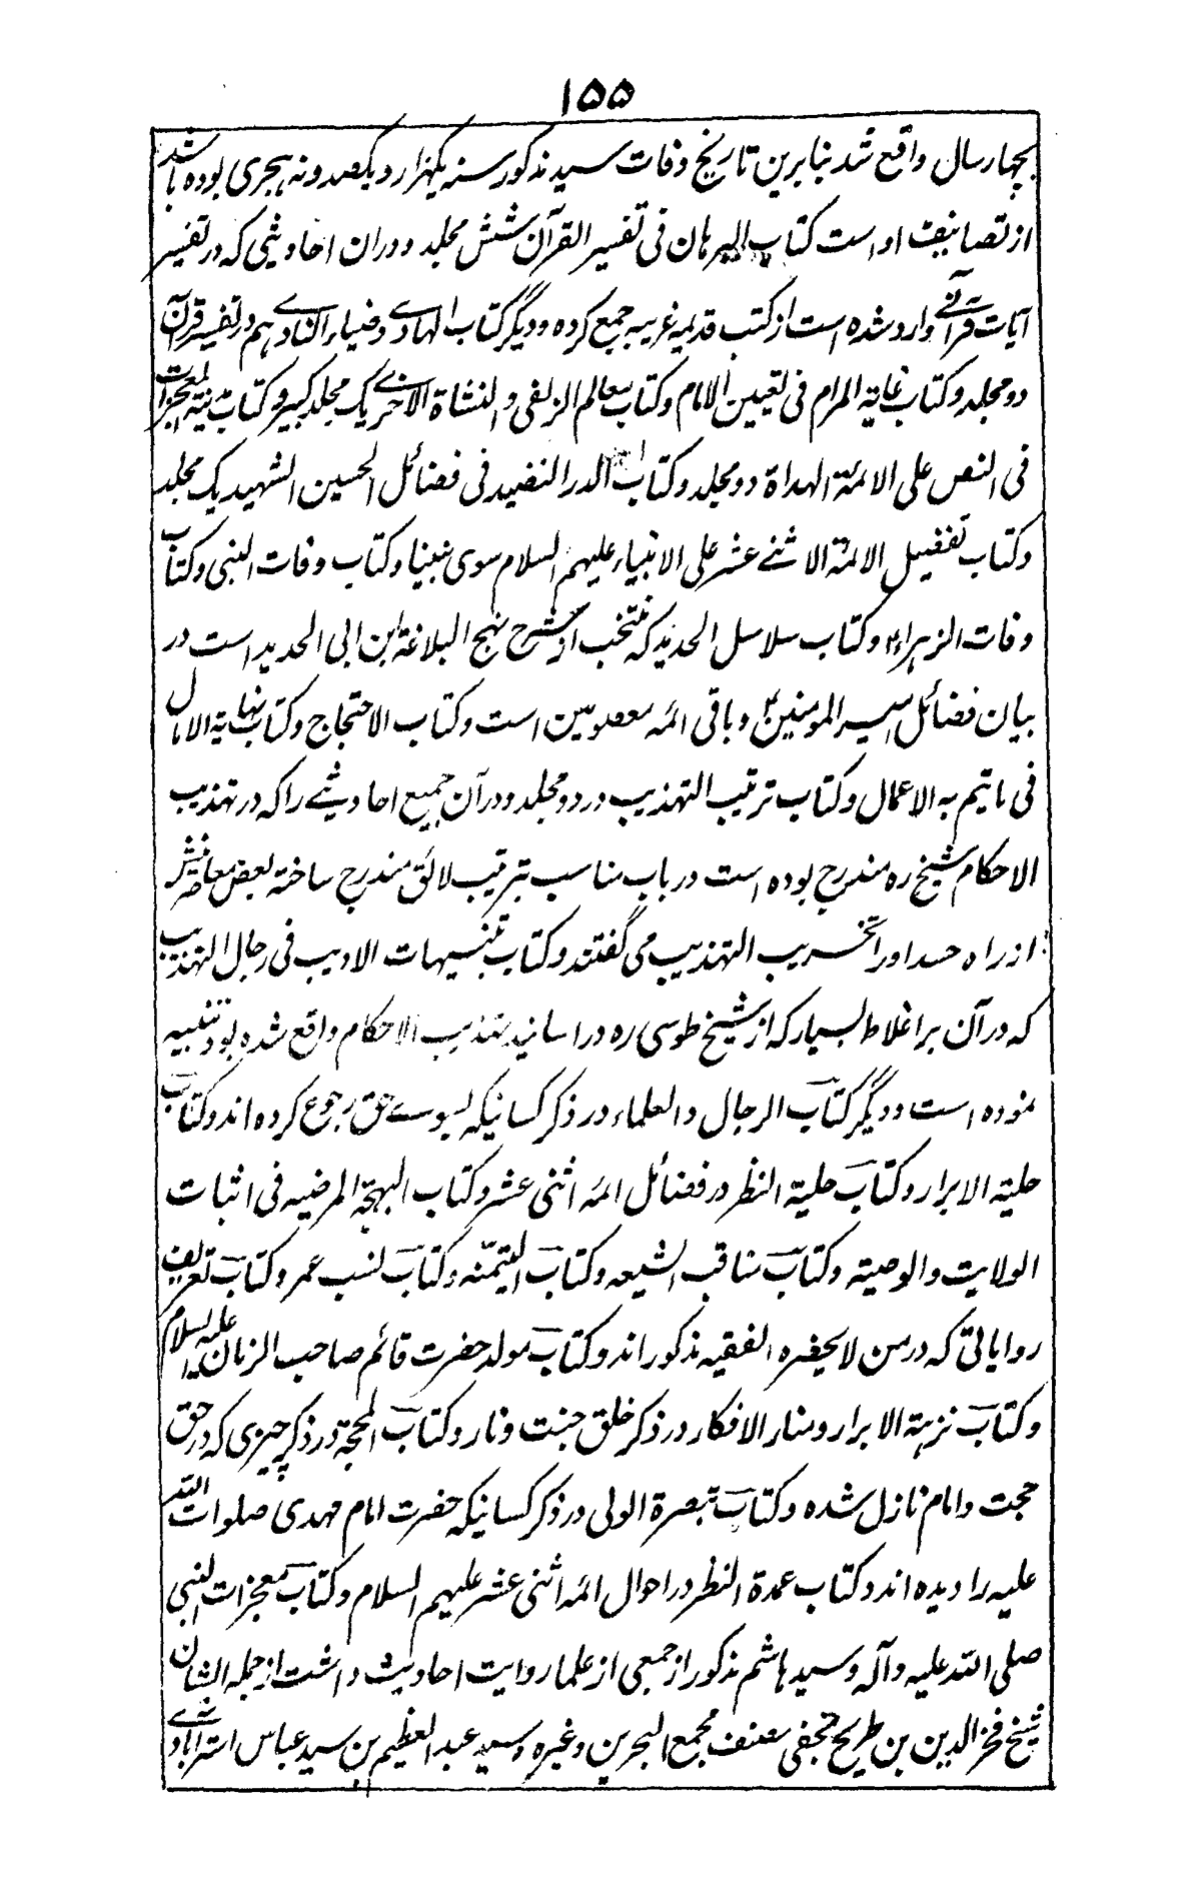 ۱۵۵
بچهار سال واقع شد بنابرین تاریخ وفات سید مذکور سنه یکهزار و یکصد و نه هجری بوده باشد
از تصانیف او است کتاب البرهان فی تفسیر القرآن شش مجلد و دران احادیثی که در تفسیر
آیات قرآنی وارد شده است از کتب قدیمه غریبه جمع کرده و دیگر کتاب الهادی و ضیاء النادی هم در تفسیر قرآن
دو مجلد و کتاب غایة المرام فی تعیین الامام و کتاب معالم الزلفی و النشاة الاخری یک مجلد کبیر و کتاب مدینة المعجزات
فی النص علی الائمة الهداة دو مجلد و کتاب الدر النضید فی فضائل الحسین الشهید یک مجلد
و کتاب تفضیل الائمة الاثنے عشر علی الانبیاء علیهم السلام سوی نبینا و کتاب وفات النبی و کتاب
وفات الزهراء و کتاب سلاسل الحدید که منتخب از شرح نهج البلاغة ابن ابی الحدید است در
بیان فضائل امیر المومنین و باقی ائمه معصومین است و کتاب الاحتجاج و کتاب نهایة الامال
فی ما یتم به الاعمال و کتاب ترتیب التهذیب در دو مجلد و درآن جمیع احادیثے را که در تهذیب
الاحکام شیخ ره مندرج بوده است در باب مناسب بترتیب لائق مندرج ساخته بعض معاصرینش
از راه حسد او را تخریب التهذیب می گفتند و کتاب تنبیهات الادیب فی رجال التهذیب
که درآن بر اغلاط بسیار که از شیخ طوسی ره در اسانید تهذیب الاحکام واقع شده بود تنبیه
نموده است و دیگر کتاب الرجال و العلماء در ذکر کسانیکه بسوے حق رجوع کرده اند و کتاب
حلیة الابرار و کتاب حلیة النظر در فضائل ائمه اثنی عشر و کتاب البهجة المرضیه فی اثبات
الولایت و الوصیة و کتاب مناقب الشیعه و کتاب الیتیمة و کتاب نسب عمر و کتاب تعریف
روایاتی که در من لا یحضره الفقیه مذکور اند و کتاب مولد حضرت قائم صاحب الزمان علیه السلام
و کتاب نزهة الابرار و منار الافکار در ذکر خلق جنت و نار و کتاب المحجة در ذکر چیزی که در حق
حجت و امام نازل شده و کتاب تبصرة الولی در ذکر کسانیکه حضرت امام مهدی صلوات الله
علیه را دیده اند و کتاب عمدة النظر در احوال ائمه اثنی عشر علیهم السلام و کتاب معجزات النبی
صلی الله علیه و آله و سید هاشم مذکور از جمعی از علما روایت احادیث داشت از جمله ایشان
شیخ فخر الدین بن طریح نجفی مصنف مجمع البحرین و غیره و سید عبد العظیم بن سید عباس استرآبادی